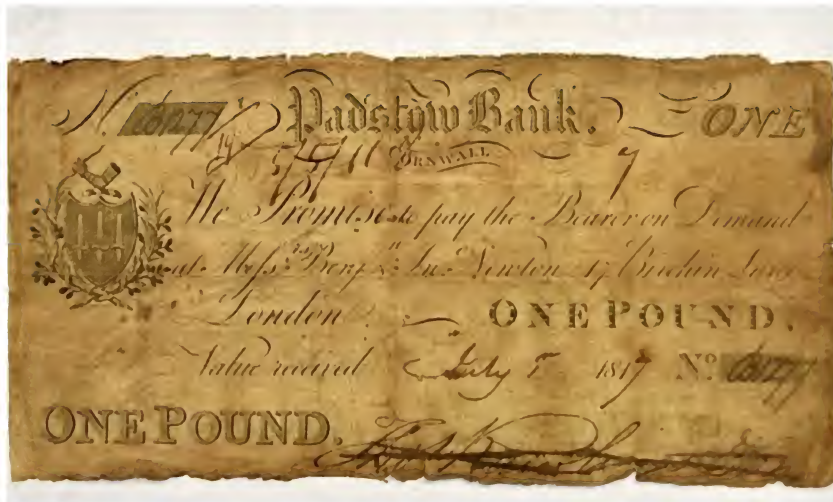 No. Padstow Bank. ONE
CORNWALL
We Promise to pay the Bearer on Demand
at Messrs. Benj. & Jno. Newton 17 Birchin Lane
London. ONE POUND.
Value received July 1817 No.
ONE POUND.